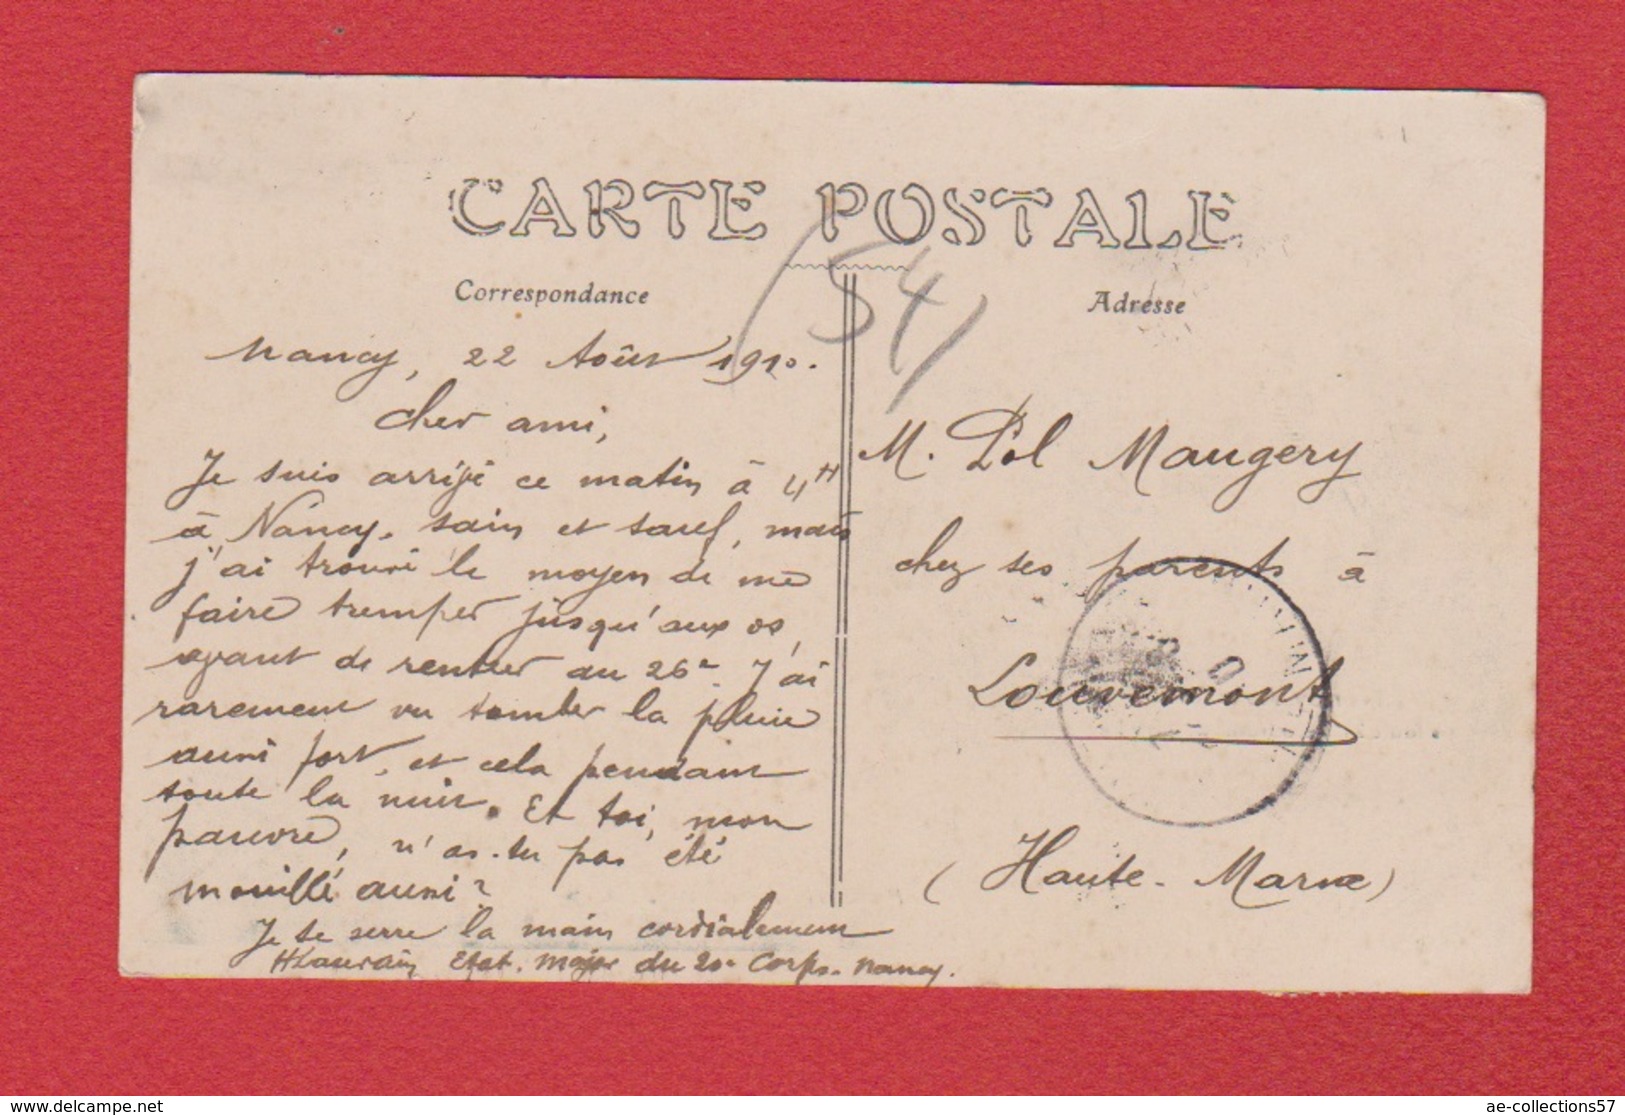 CARTE POSTALE
(54)
Correspondance
Adresse
Nancy, 22 Août 1910.
Cher ami,
Je suis arrivé ce matin à 4H
à Nancy, sain et sauf, mais
j'ai trouvé le moyen de me
faire tremper jusqu'aux os
avant de rentrer au 26e. J'ai
rarement vu tomber la pluie
aussi fort, et cela pendant
toute la nuit. Et toi, mon
pauvre, n'as-tu pas été
mouillé aussi?
Je te serre la main cordialement
Etat. Major du 20e Corps. Nancy.
M. Pol Maugery
chez ses parents à
Louvemont
(Haute-Marne)
ae-collections57